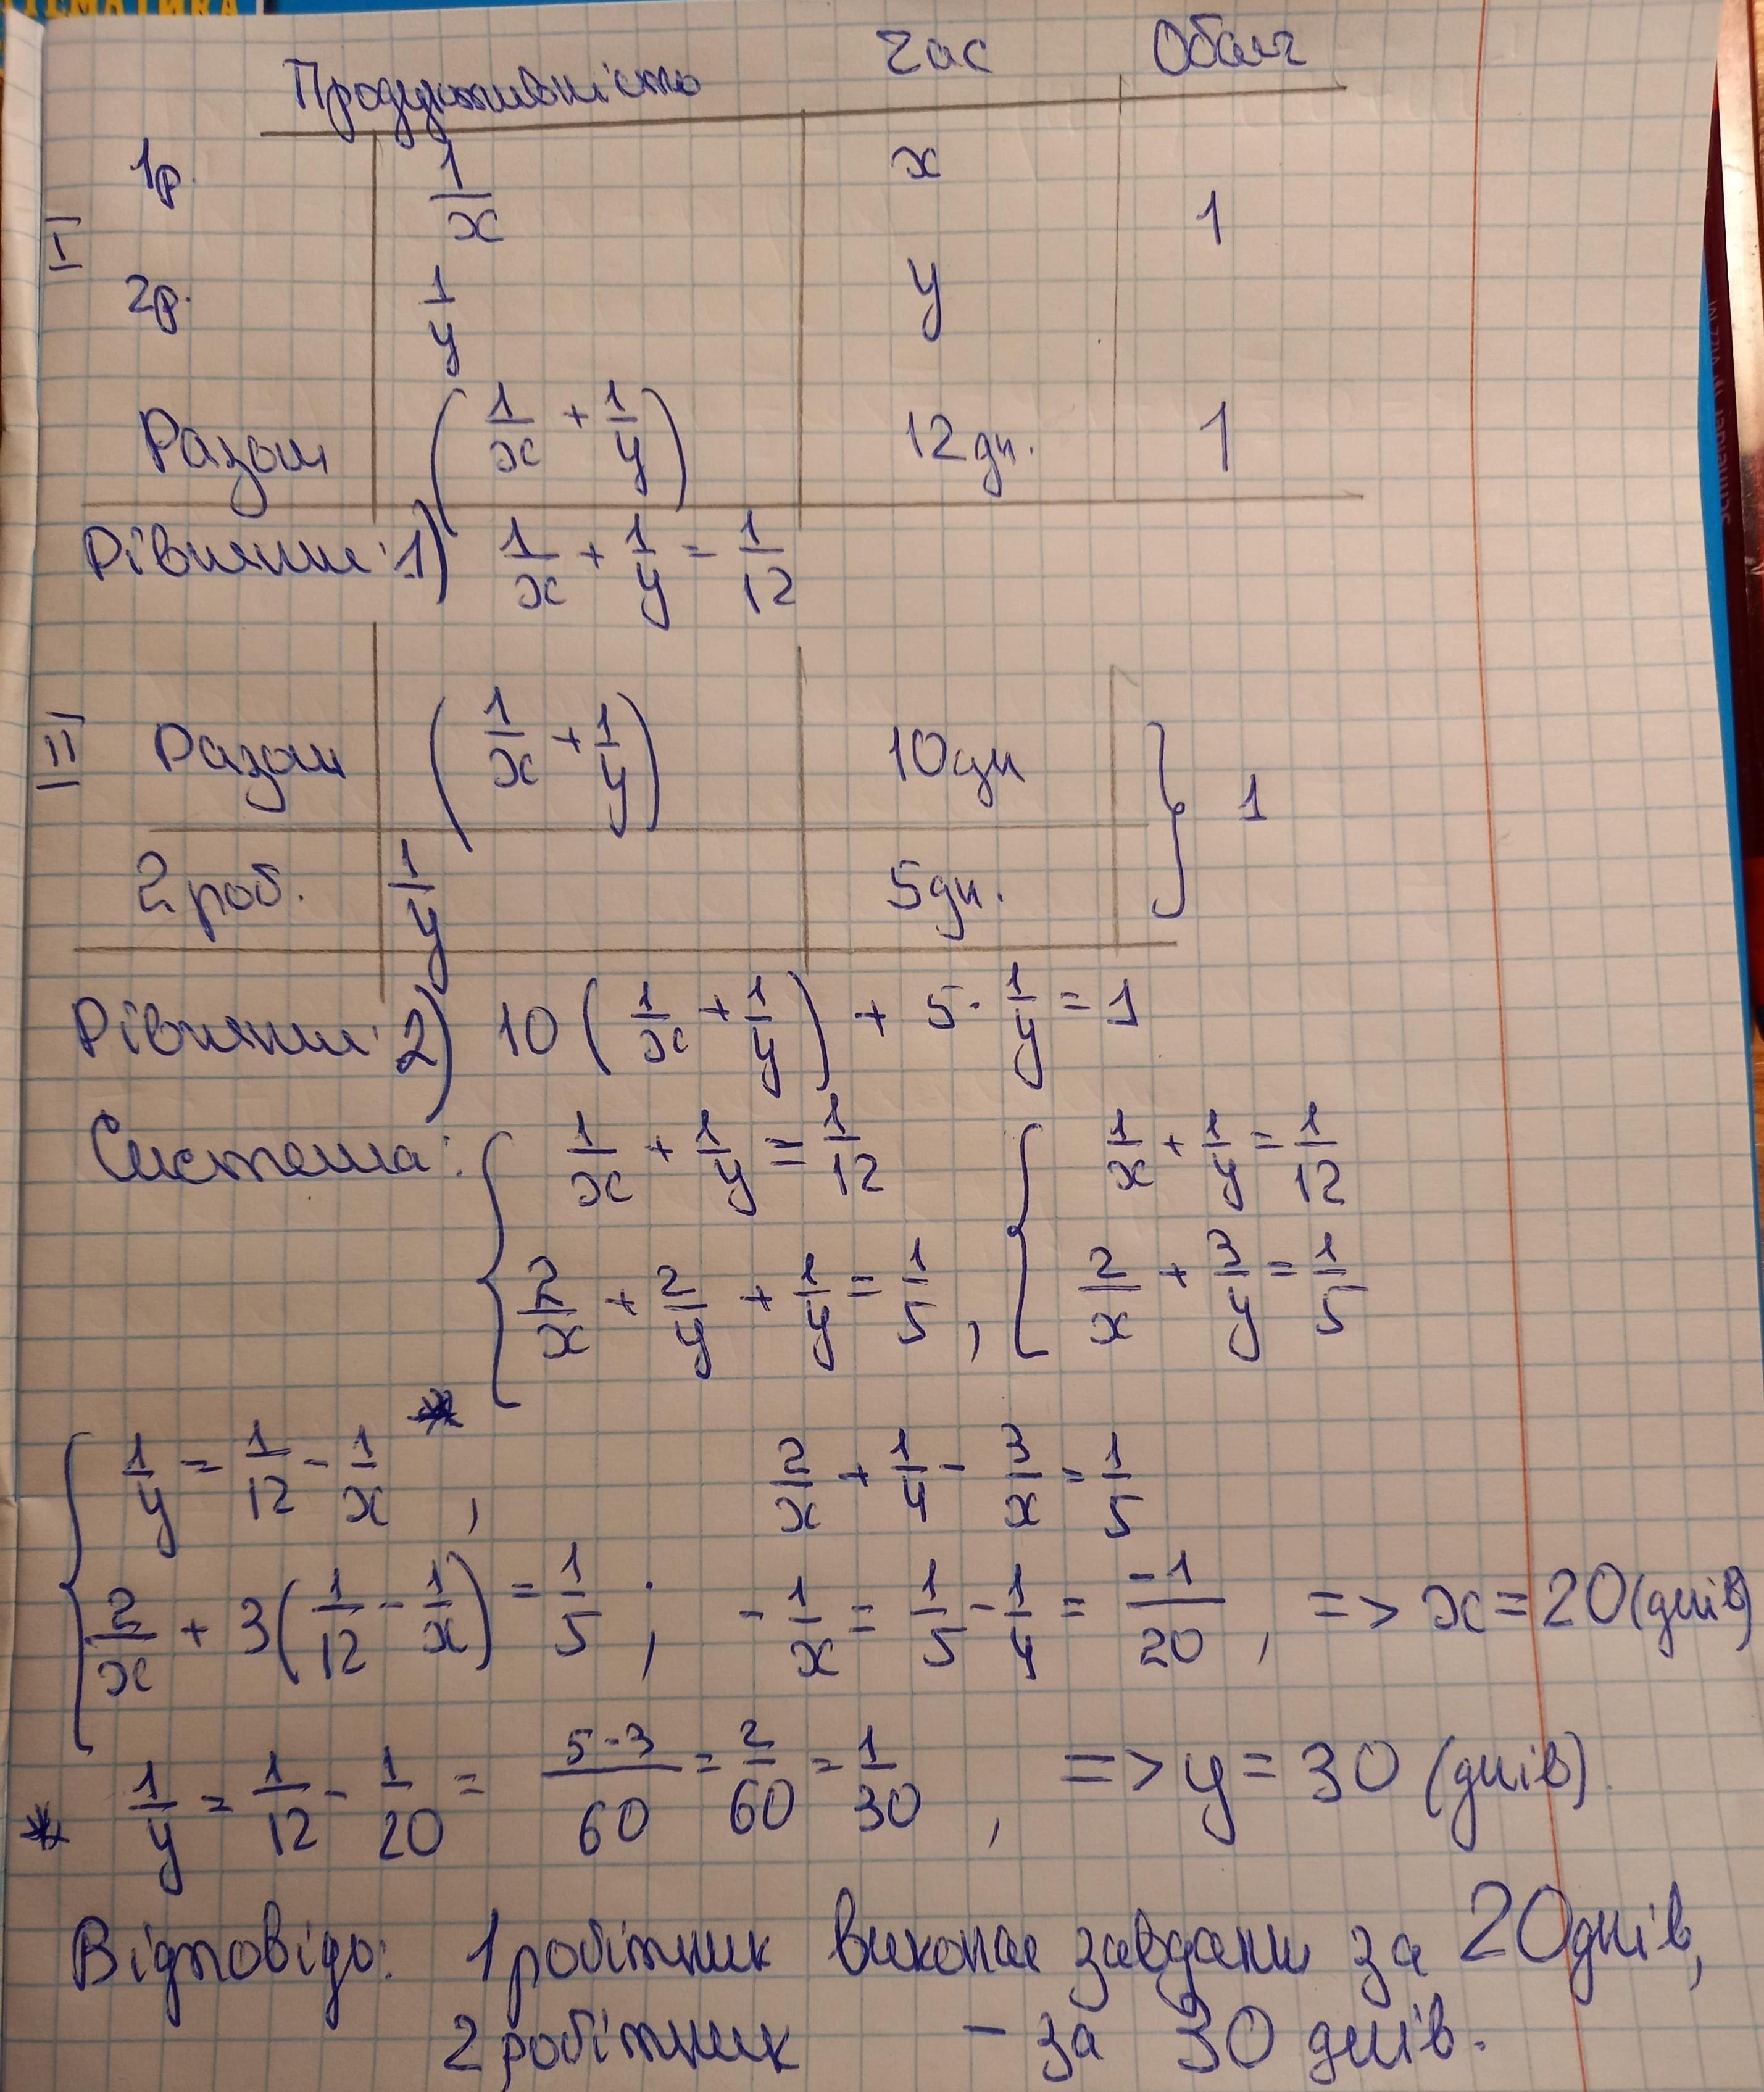 МАТЕМАТИКА
Продуктивність Час Обсяг
I 1р. 1/x x
1
2р. 1/y y
Разом (1/x + 1/y) 12 дн. 1
Рівняння: 1) 1/x + 1/y = 1/12
II Разом (1/x + 1/y) 10 дн
} 1
2 роб. 1/y 5 дн.
Рівняння: 2) 10 (1/x + 1/y) + 5 · 1/y = 1
Система: { 1/x + 1/y = 1/12 { 1/x + 1/y = 1/12
2/x + 2/y + 1/y = 1/5 , 2/x + 3/y = 1/5
{ 1/y = 1/12 - 1/x * , 2/x + 1/4 - 3/x = 1/5
2/x + 3(1/12 - 1/x) = 1/5 ; - 1/x = 1/5 - 1/4 = -1/20 , => x = 20 (днів)
* 1/y = 1/12 - 1/20 = 5-3/60 = 2/60 = 1/30 , => y = 30 (днів).
Відповідь: 1 робітник виконає завдання за 20 днів,
2 робітник - за 30 днів.